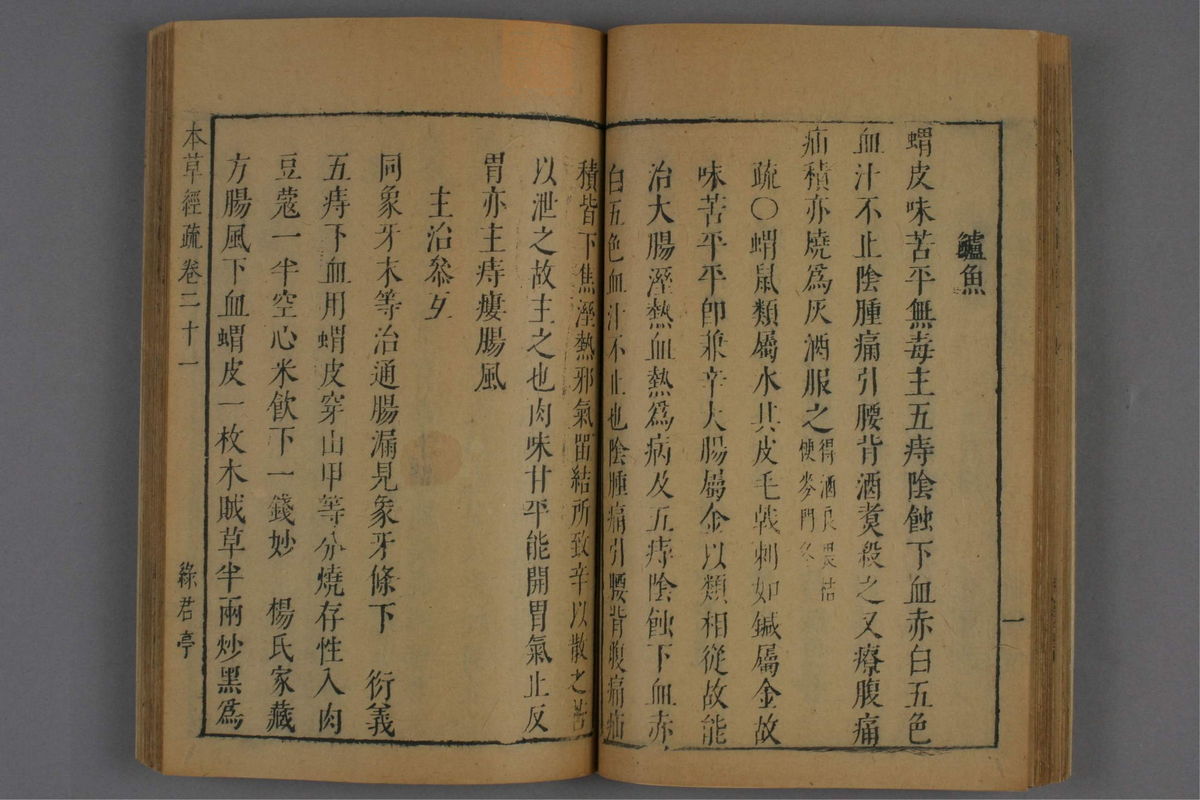 鱸魚
蝟皮味苦平無毒主五痔陰蝕下血赤白五色
血汁不止陰腫痛引腰背酒煑殺之又療腹痛
疝積亦燒爲灰酒服之得酒良畏桔
便麥門冬
疏〇蝟鼠類屬水其皮毛戟刺如鍼屬金故
味苦平平卽兼辛大腸屬金以類相從故能
治大腸溼熱血熱爲病及五痔陰蝕下血赤
白五色血汁不止也陰腫痛引腰背腹痛疝
一
積皆下焦溼熱邪氣留結所致辛以散之苦
以泄之故主之也肉味甘平能開胃氣止反
胃亦主痔瘻腸風
主治叅互
同象牙末等治通腸漏見象牙條下 衍義
五痔下血用蝟皮穿山甲等分燒存性入肉
豆蔻一半空心米飮下一錢妙 楊氏家藏
方腸風下血蝟皮一枚木賊草半兩炒黑爲
本草經疏卷二十一
綠君亭